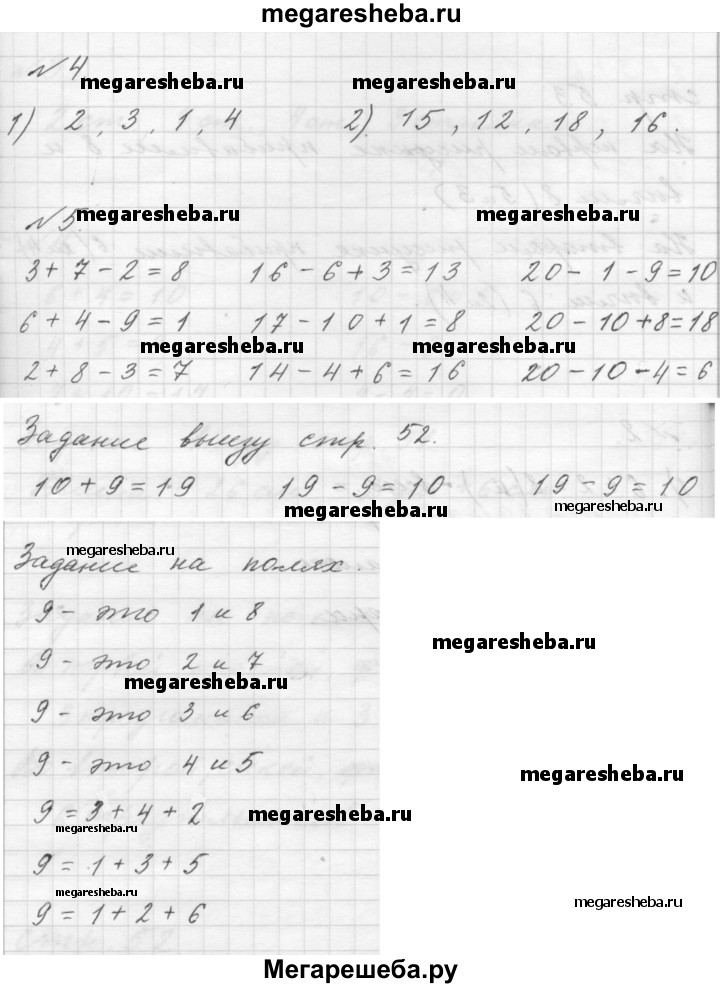 megaresheba.ru
№4
megaresheba.ru megaresheba.ru
1) 2, 3, 1, 4 2). 15, 12, 18, 16.
№5.
megaresheba.ru megaresheba.ru
3 + 7 - 2 = 8 16 - 6 + 3 = 13 20 - 1 - 9 = 10
6 + 4 - 9 = 1 17 - 10 + 1 = 8 20 - 10 + 8 = 18
megaresheba.ru megaresheba.ru
2 + 8 - 3 = 7 14 - 4 + 6 = 16 20 - 10 - 4 = 6
Задание внизу стр. 52.
10 + 9 = 19 19 - 9 = 10 19 - 9 = 10
megaresheba.ru megaresheba.ru
megaresheba.ru
Задание на полях.
9 - это 1 и 8
megaresheba.ru
9 - это 2 и 7
megaresheba.ru
9 - это 3 и 6
9 - это 4 и 5
megaresheba.ru
9 = 3 + 4 + 2
megaresheba.ru
megaresheba.ru
9 = 1 + 3 + 5
megaresheba.ru
megaresheba.ru
9 = 1 + 2 + 6
Мегарешеба.ру